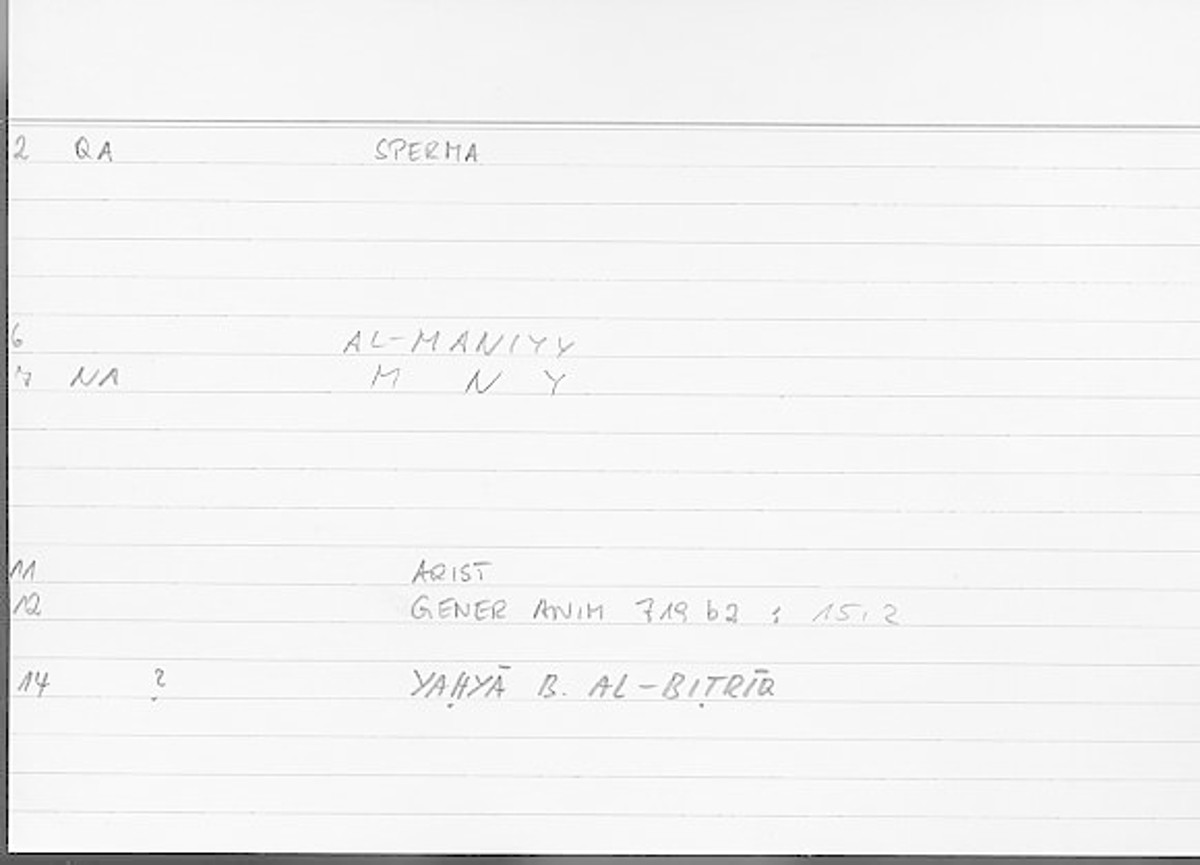 2 QA SPERMA
6 AL-MANIYY
7 NA M N Y
11 ARIST
12 GENER ANIM 719 b2 ; 15,2
14 ? YAḤYĀ B. AL-BIṬRĪQ